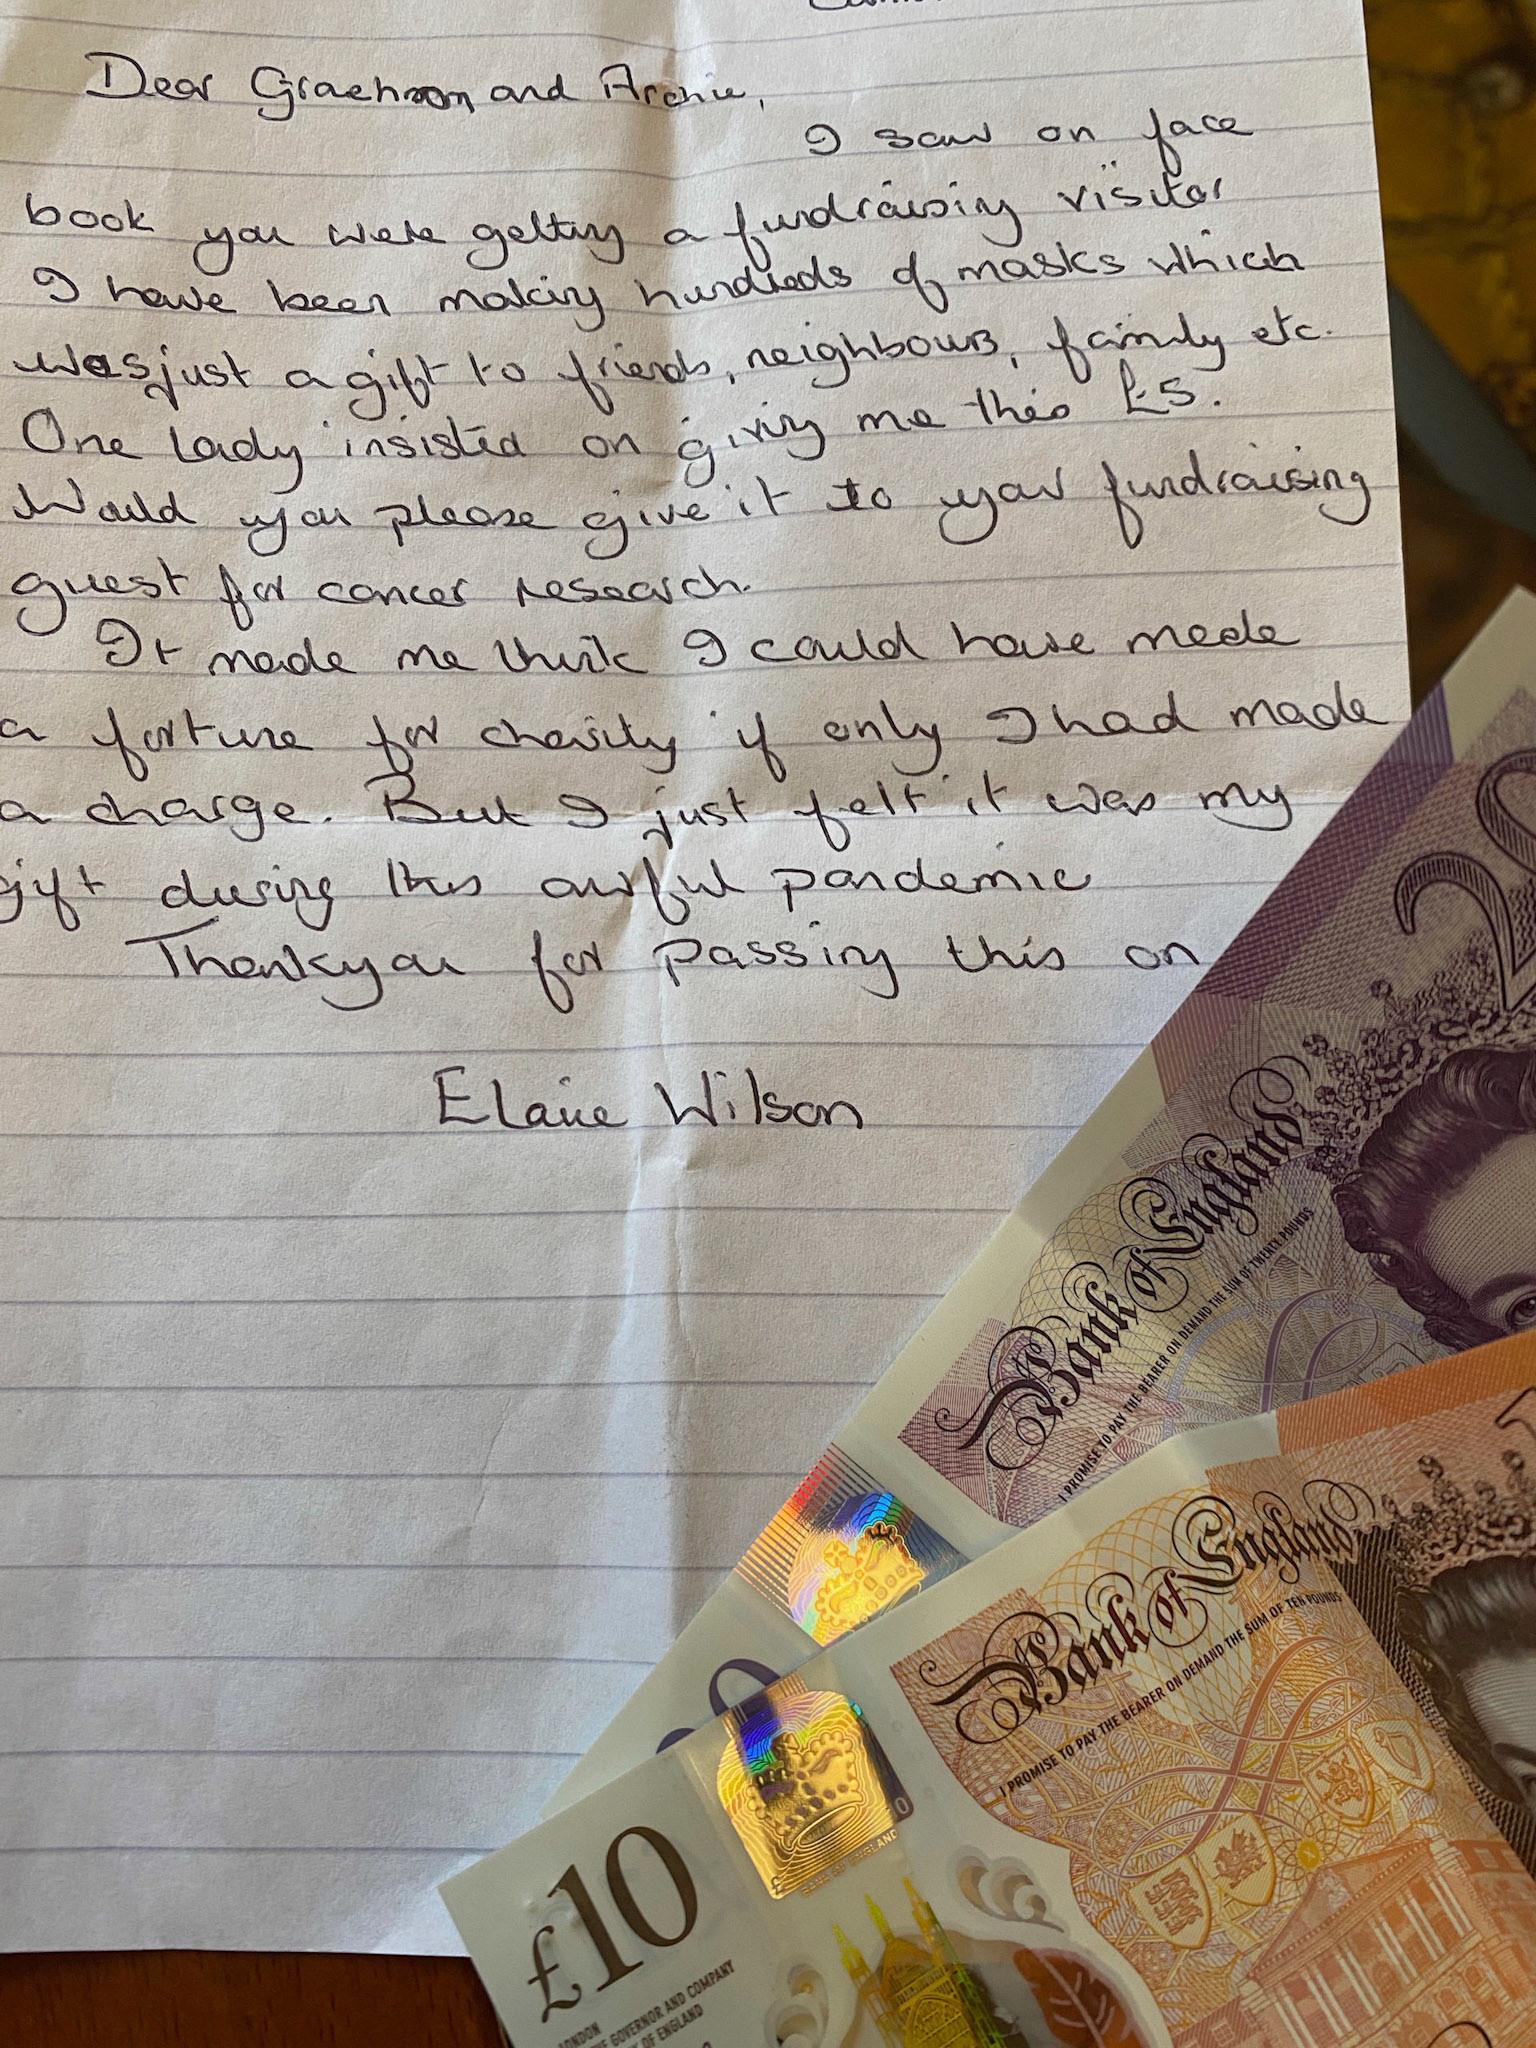 Dear Graehmom and Archie,
I saw on face
book you were getting a fundraising visitor
I have been making hundreds of masks which
was just a gift to friends, neighbours, family etc.
One lady insisted on giving me this £5.
Would you please give it to your fundraising
guest for cancer research.
It made me think I could have made
a fortune for charity if only I had made
a charge. But I just felt it was my
gift during this awful pandemic
Thankyou for passing this on
Elaine Wilson
20
Bank of England
I PROMISE TO PAY THE BEARER ON DEMAND THE SUM OF TWENTY POUNDS
Bank of England
I PROMISE TO PAY THE BEARER ON DEMAND THE SUM OF TEN POUNDS
£10
LONDON
THE GOVERNOR AND COMPANY
OF ENGLAND